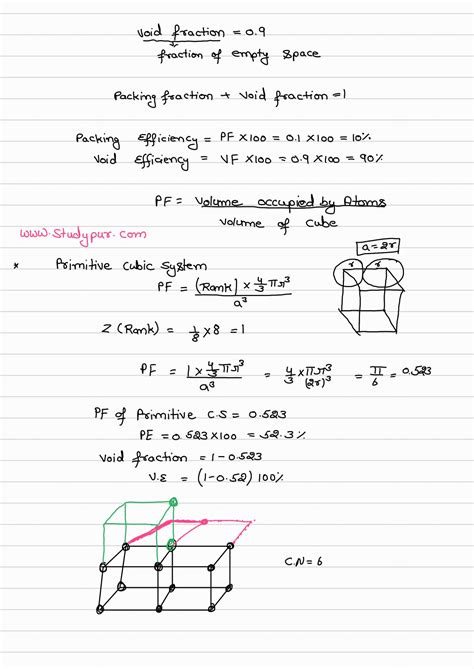 Void fraction = 0.9
fraction of empty space
Packing fraction + Void fraction = 1
Packing Efficiency = PF × 100 = 0.1 × 100 = 10%
Void Efficiency = VF × 100 = 0.9 × 100 = 90%
PF = Volume occupied by Atoms
Volume of cube
www.studypur.com
a = 2r
* Primitive Cubic System
r r
PF = (Rank) × 4/3 πr³
a³
Z (Rank) = 1/8 × 8 = 1
PF = 1 × 4/3 πr³ / a³ = 4/3 × πr³ / (2r)³ = π/6 = 0.523
PF of Primitive C.S = 0.523
PE = 0.523 × 100 = 52.3%
Void fraction = 1 - 0.523
V.E = (1 - 0.52) 100%
C.N = 6